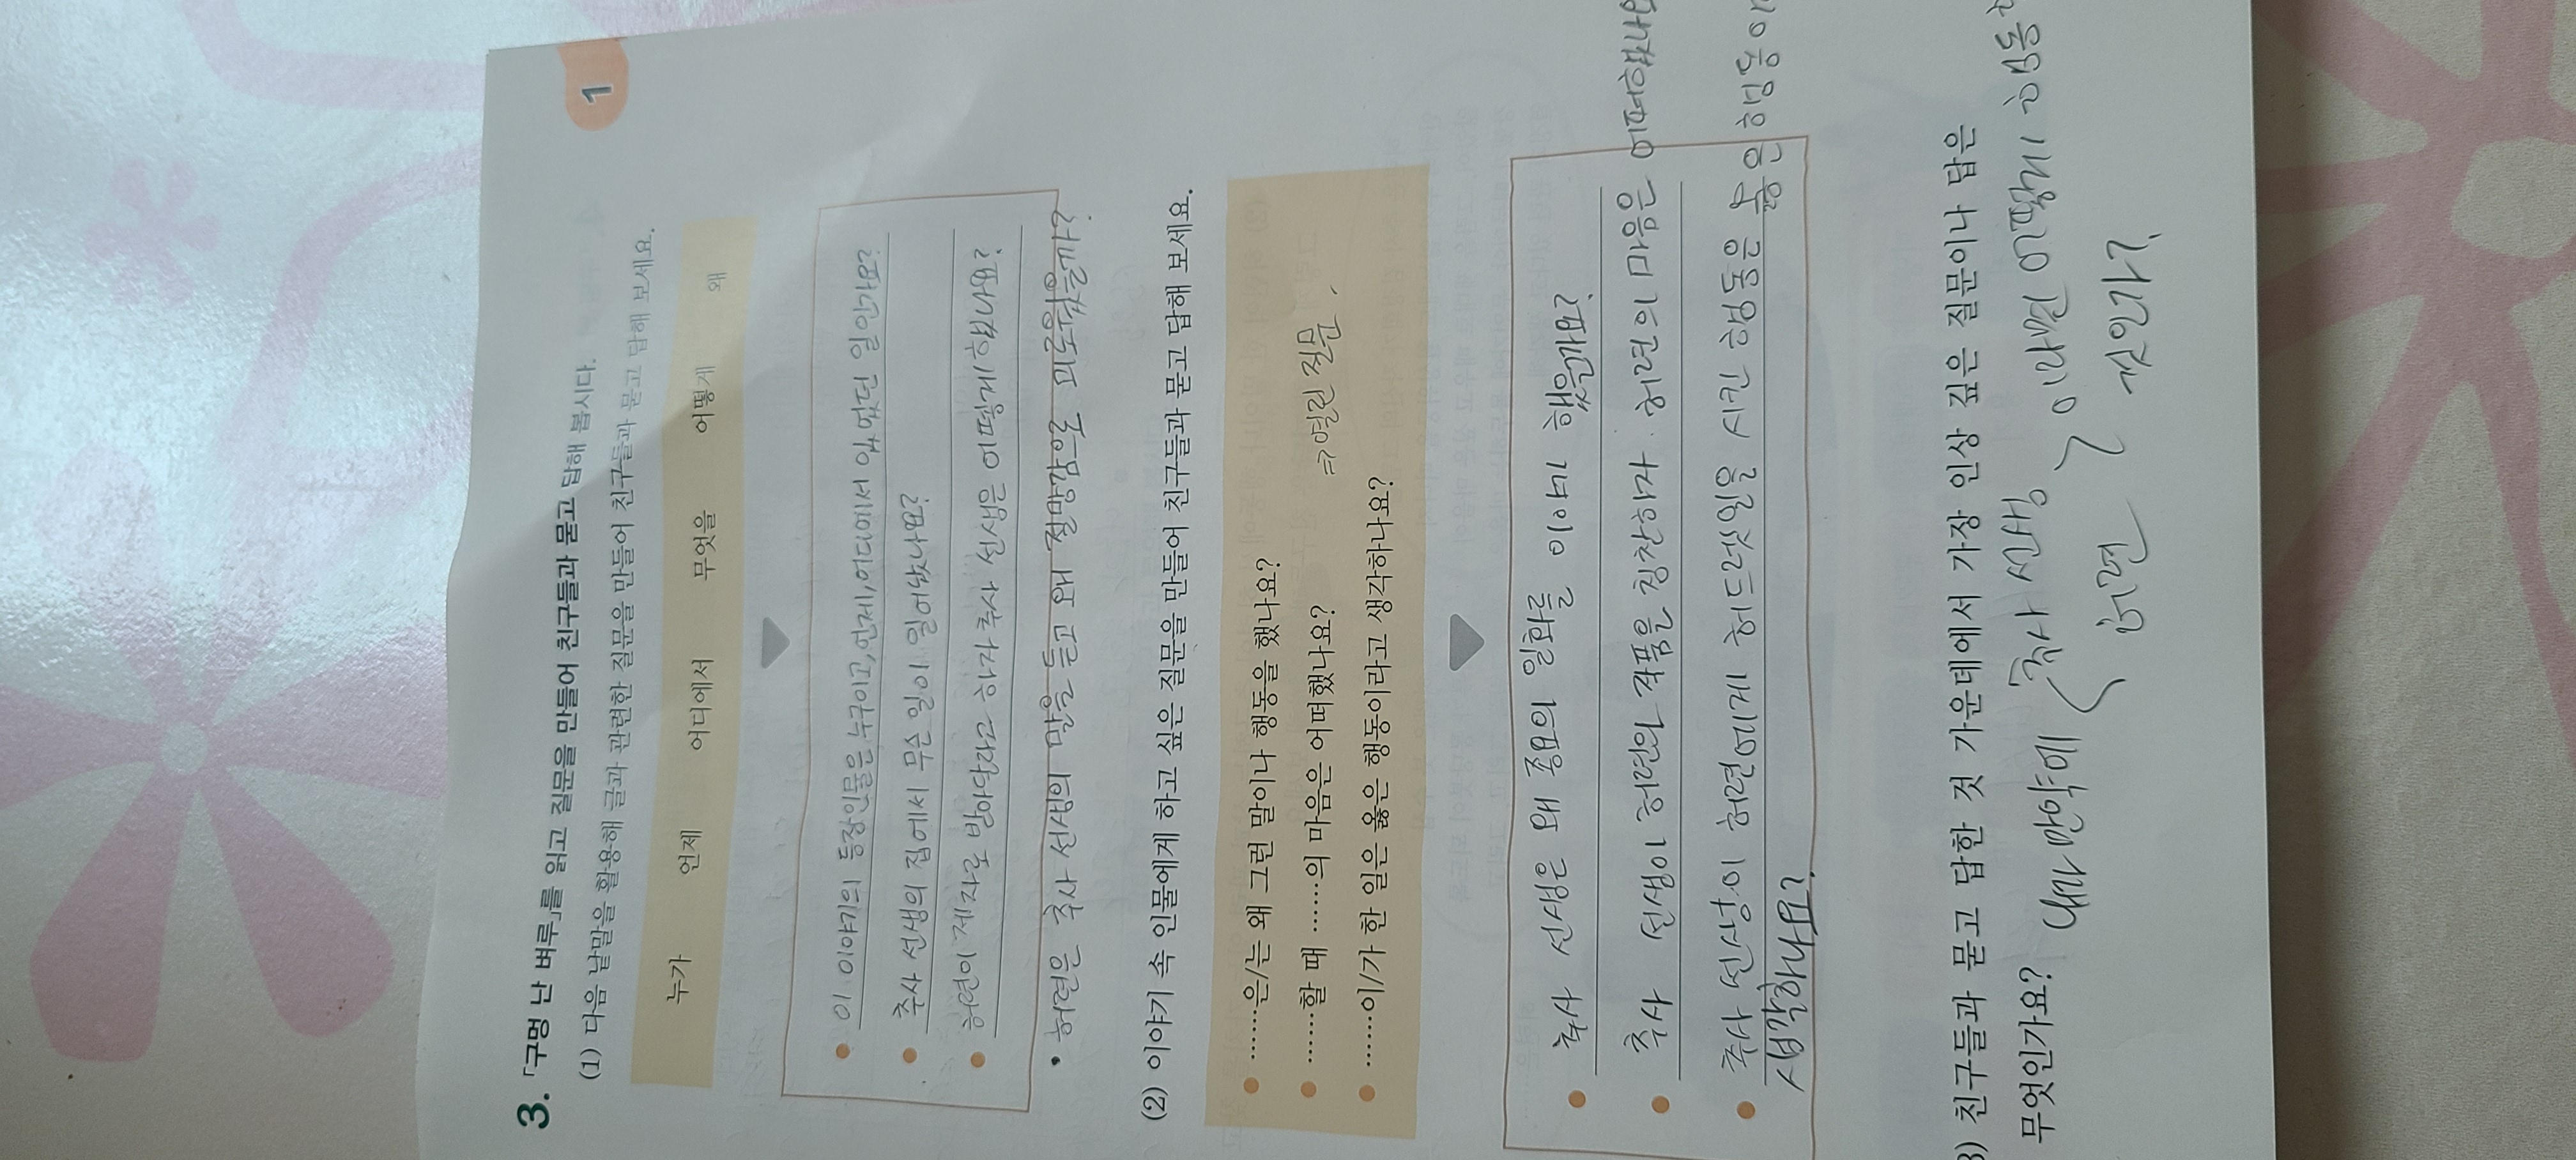 1
3. 「구멍 난 벼루」를 읽고 질문을 만들어 친구들과 묻고 답해 봅시다.
(1) 다음 낱말을 활용해 글과 관련한 질문을 만들어 친구들과 묻고 답해 보세요.
누가 언제 어디에서 무엇을 어떻게 왜
• 이 이야기의 등장인물은 누구이고, 언제, 어디에서 있었던 일인가요?
• 추사 선생의 집에서 무슨 일이 일어났나요?
• 허련이 제자로 받아달라고 하자 추사 선생은 어떻게 했나요?
• 허련은 추사 선생의 말을 듣고 왜 절망감으로 괴로웠을까?
(2) 이야기 속 인물에게 하고 싶은 질문을 만들어 친구들과 묻고 답해 보세요.
• ......은/는 왜 그런 말이나 행동을 했나요?
• ......할 때 ......의 마음은 어떠했나요? ⇒ 열린 질문.
• ......이/가 한 일은 옳은 행동이라고 생각하나요?
• 추사 선생은 왜 종요의 일화를 이야기 했을까요?
• 추사 선생이 허련의 작품을 칭찬하자 허련의 마음은 어떠했나요
• 추사 선생이 허련에게 허드렛일을 시킨 행동은 옳은 행동이
생각하나요?
3) 친구들과 묻고 답한 것 가운데에서 가장 인상 깊은 질문이나 답은
무엇인가요? 내가 만약에 추사 선생 이라면 어떻게 행동
허련 것인가?